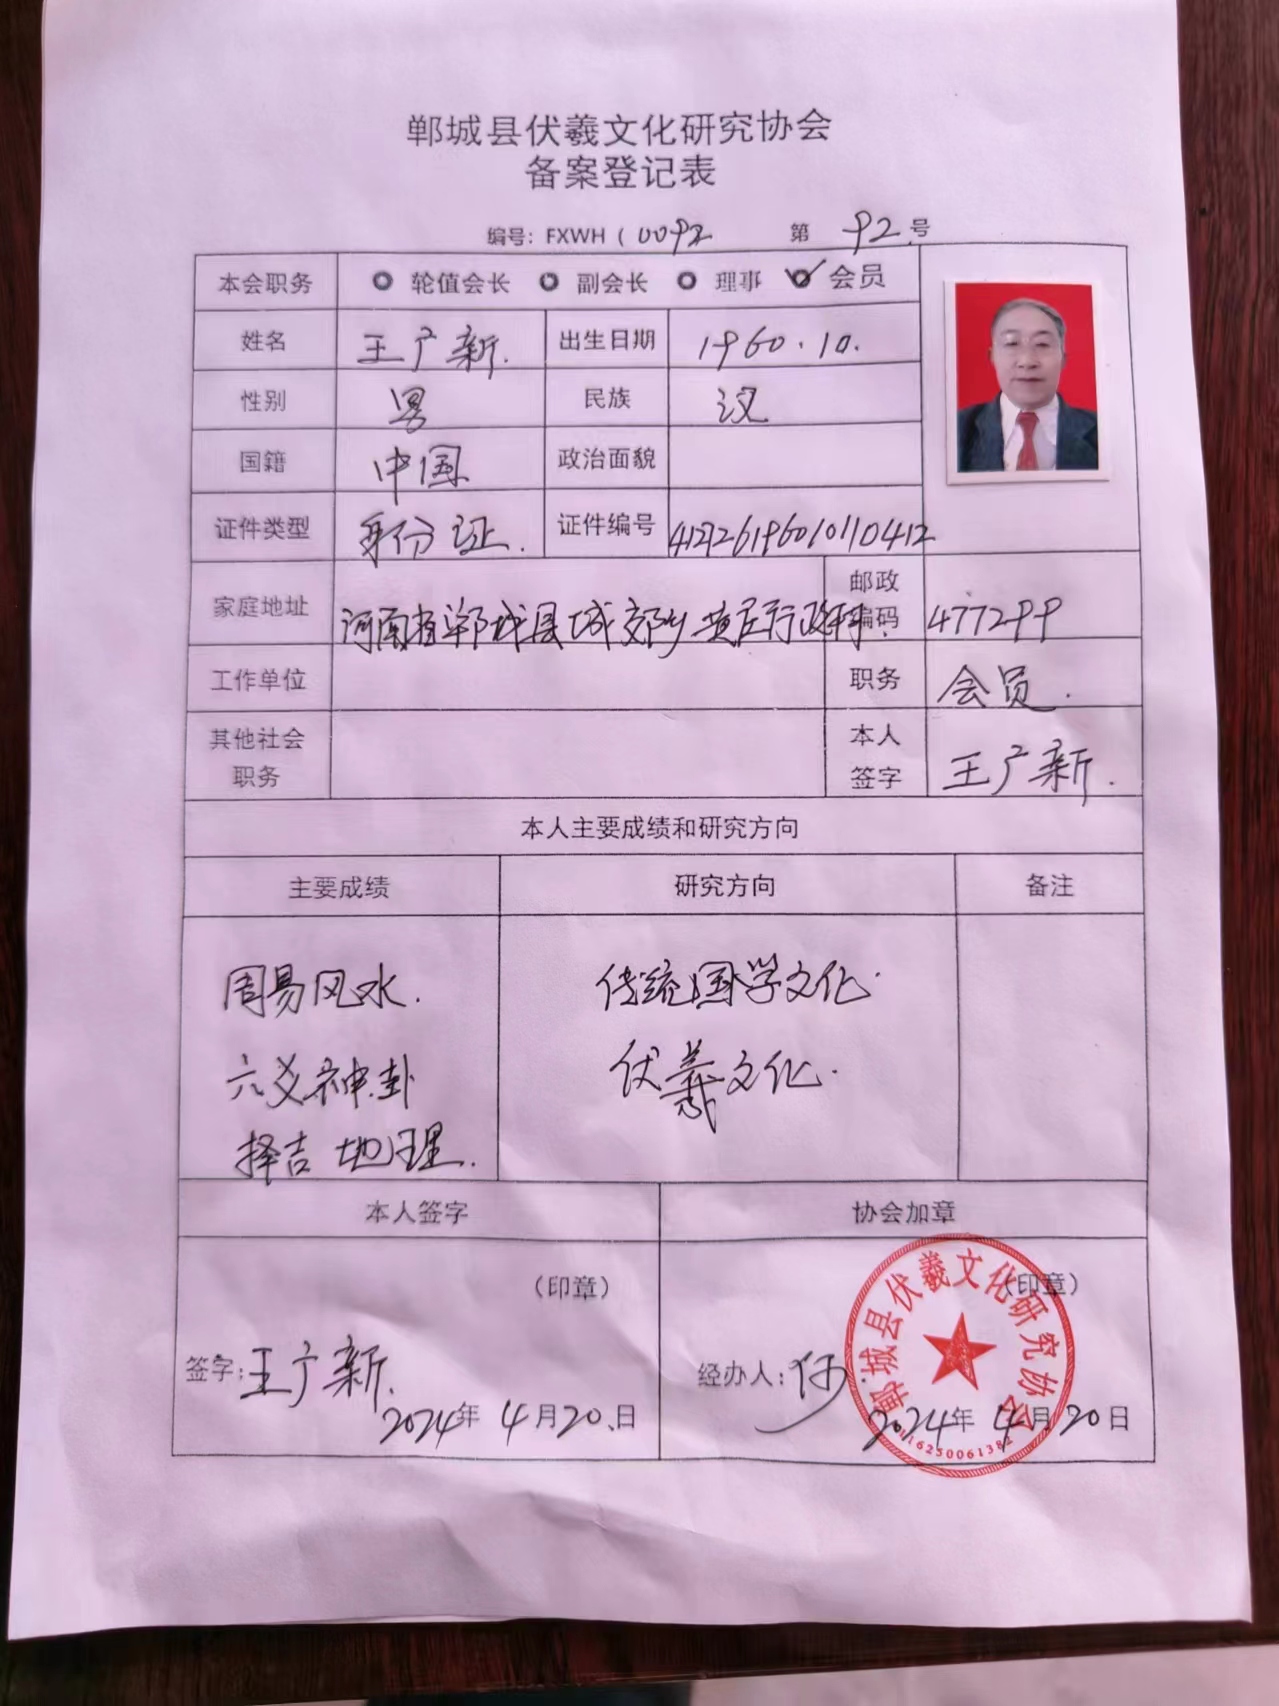 郸城县伏羲文化研究协会
备案登记表
编号: FXWH ( 0092 第 92 号
本会职务 轮值会长 副会长 理事 会员
姓名 王广新. 出生日期 1960.10.
性别 男 民族 汉
国籍 中国 政治面貌
证件类型 身份证. 证件编号 412726196010110412
家庭地址 河南省郸城县城郊乡黄庄行政村. 邮政编码 477299
工作单位 职务 会员.
其他社会职务 本人签字 王广新.
本人主要成绩和研究方向
主要成绩 研究方向 备注
周易风水. 传统国学文化.
六爻神卦 伏羲文化.
择吉 地理.
本人签字 协会加章
(印章) (印章)
签字: 王广新. 经办人: 何
2024年 4月20.日 2024年 4月20日
郸城县伏羲文化研究协会